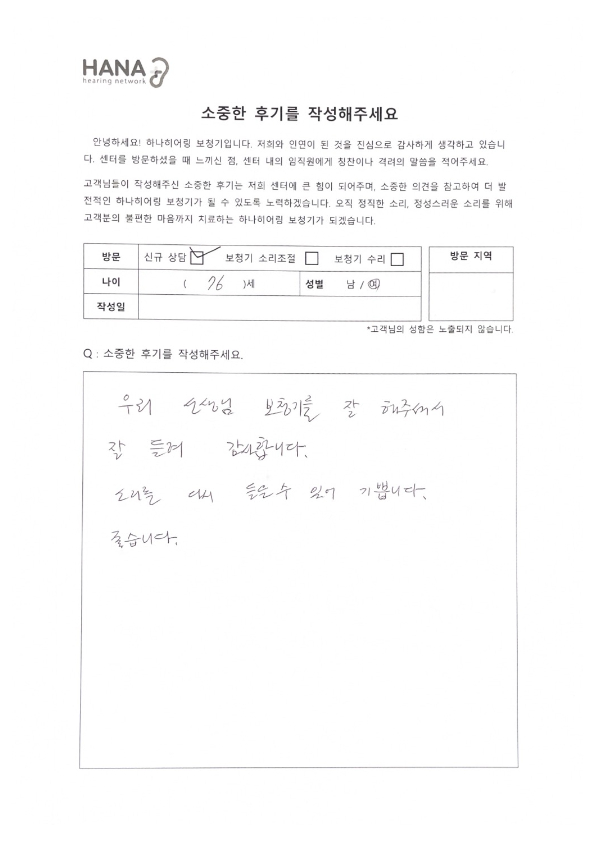 HANA
hearing network
소중한 후기를 작성해주세요
안녕하세요! 하나히어링 보청기입니다. 저희와 인연이 된 것을 진심으로 감사하게 생각하고 있습니
다. 센터를 방문하셨을 때 느끼신 점, 센터 내의 임직원에게 칭찬이나 격려의 말씀을 적어주세요.
고객님들이 작성해주신 소중한 후기는 저희 센터에 큰 힘이 되어주며, 소중한 의견을 참고하여 더 발
전적인 하나히어링 보청기가 될 수 있도록 노력하겠습니다. 오직 정직한 소리, 정성스러운 소리를 위해
고객분의 불편한 마음까지 치료하는 하나히어링 보청기가 되겠습니다.
방문 신규 상담 보청기 소리조절 보청기 수리 방문 지역
나이 ( 76 )세 성별 남 / 여
작성일
*고객님의 성함은 노출되지 않습니다.
Q : 소중한 후기를 작성해주세요.
우리 선생님 보청기를 잘 해주셔서
잘 들려 감사합니다.
소리를 다시 들을수 있어 기쁩니다.
좋습니다.